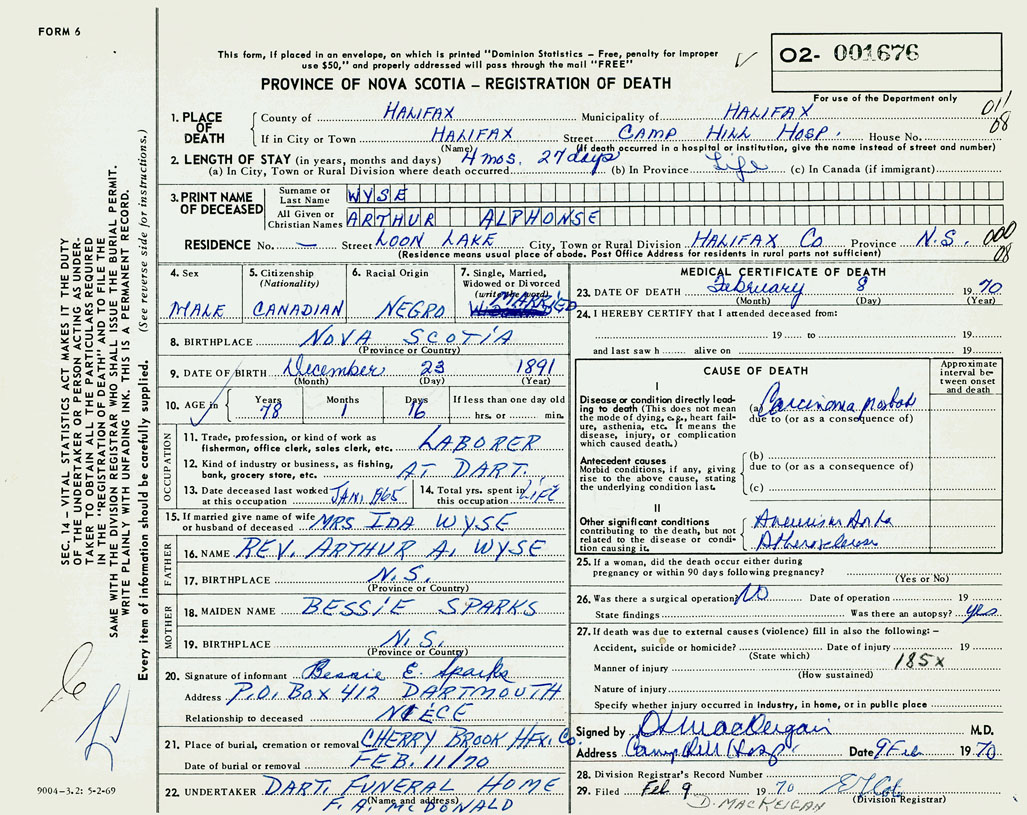 FORM 6
This form, if placed in an envelope, on which is printed "Dominion Statistics – Free, penalty for improper
use $50," and properly addressed will pass through the mail "FREE"
O2- 001676
PROVINCE OF NOVA SCOTIA – REGISTRATION OF DEATH
For use of the Department only
011
08
1. PLACE OF DEATH
County of HALIFAX Municipality of HALIFAX
If in City or Town HALIFAX Street CAMP HILL HOSP. House No.
(Name) (If death occurred in a hospital or institution, give the name instead of street and number)
2. LENGTH OF STAY (in years, months and days) 4 mos. 27 days
(a) In City, Town or Rural Division where death occurred (b) In Province Life (c) In Canada (if immigrant)
3. PRINT NAME OF DECEASED
Surname or Last Name WYSE
All Given or Christian Names ARTHUR ALPHONSE
RESIDENCE No. — Street LOON LAKE City, Town or Rural Division HALIFAX Co Province N.S.
000
08
(Residence means usual place of abode. Post Office Address for residents in rural parts not sufficient)
4. Sex
MALE
5. Citizenship
(Nationality)
CANADIAN
6. Racial Origin
NEGRO
7. Single, Married,
Widowed or Divorced
(write the word)
MARRIED
8. BIRTHPLACE NOVA SCOTIA
(Province or Country)
9. DATE OF BIRTH December 23 1891
(Month) (Day) (Year)
10. AGE in Years Months Days If less than one day old
78 1 16 hrs. or min.
OCCUPATION
11. Trade, profession, or kind of work as
fisherman, office clerk, sales clerk, etc. LABORER
12. Kind of industry or business, as fishing,
bank, grocery store, etc. AT DART.
13. Date deceased last worked
at this occupation JAN. 1965
14. Total yrs. spent in
this occupation LIFE
15. If married give name of wife
or husband of deceased MRS IDA WYSE
FATHER
16. NAME REV. ARTHUR A. WYSE
17. BIRTHPLACE N.S.
(Province or Country)
MOTHER
18. MAIDEN NAME BESSIE SPARKS
19. BIRTHPLACE N.S.
(Province or Country)
20. Signature of informant Bessie E. Sparks
Address P.O. BOX 412 DARTMOUTH
Relationship to deceased NIECE
21. Place of burial, cremation or removal CHERRY BROOK HFX. Co.
Date of burial or removal FEB. 11/70
22. UNDERTAKER DART. FUNERAL HOME
(Name and address)
F. A. McDONALD
MEDICAL CERTIFICATE OF DEATH
23. DATE OF DEATH February 8 1970
(Month) (Day) (Year)
24. I HEREBY CERTIFY that I attended deceased from:
19 to 19
and last saw h alive on 19
CAUSE OF DEATH
Approximate
interval be-
tween onset
and death
I
Disease or condition directly lead-
ing to death (This does not mean
the mode of dying, e.g., heart fail-
ure, asthenia, etc. It means the
disease, injury, or complication
which caused death.)
(a) Carcinoma
due to (or as a consequence of)
Antecedent causes
Morbid conditions, if any, giving
rise to the above cause, stating
the underlying condition last.
(b)
due to (or as a consequence of)
(c)
II
Other significant conditions
contributing to the death, but not
related to the disease or condi-
tion causing it.
Aneurism Aorta
25. If a woman, did the death occur either during
pregnancy or within 90 days following pregnancy?
(Yes or No)
26. Was there a surgical operation? NO Date of operation 19
State findings Was there an autopsy? yes
27. If death was due to external causes (violence) fill in also the following: –
Accident, suicide or homicide? Date of injury 19
(State which)
185x
Manner of injury
(How sustained)
Nature of injury
Specify whether injury occurred in industry, in home, or in public place
Signed by D MacKeigan M.D.
Address Camp Hill Hosp. Date 9 Feb 1970
28. Division Registrar's Record Number
29. Filed Feb 9 1970
(Division Registrar)
D. MACKEIGAN
SEC. 14 – VITAL STATISTICS ACT MAKES IT THE DUTY
OF THE UNDERTAKER OR PERSON ACTING AS UNDER-
TAKER TO OBTAIN ALL THE PARTICULARS REQUIRED
IN THE "REGISTRATION OF DEATH" AND TO FILE THE
SAME WITH THE DIVISION REGISTRAR WHO SHALL ISSUE THE BURIAL PERMIT.
WRITE PLAINLY WITH UNFADING INK. THIS IS A PERMANENT RECORD.
Every item of information should be carefully supplied. (See reverse side for instructions.)
9004-3.2: 5-2-69